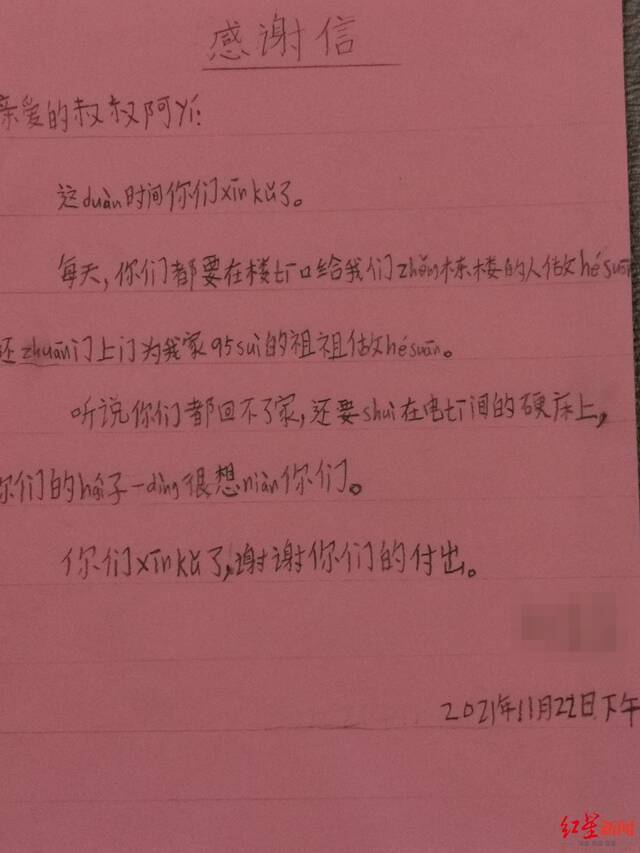 感谢信
亲爱的叔叔阿Yí:
这duàn时间你们xīnkǔ了。
每天,你们都要在楼tī口给我们zhěng栋楼的人做hésuān
还zhuān门上门为我家95suì的祖祖做hésuān。
听说你们都回不了家,还要shuì在电tī间的硬床上,
你们的hái子一dìng很想niàn你们。
你们xīnkǔ了,谢谢你们的付出。
2021年11月22日下午
红星新闻